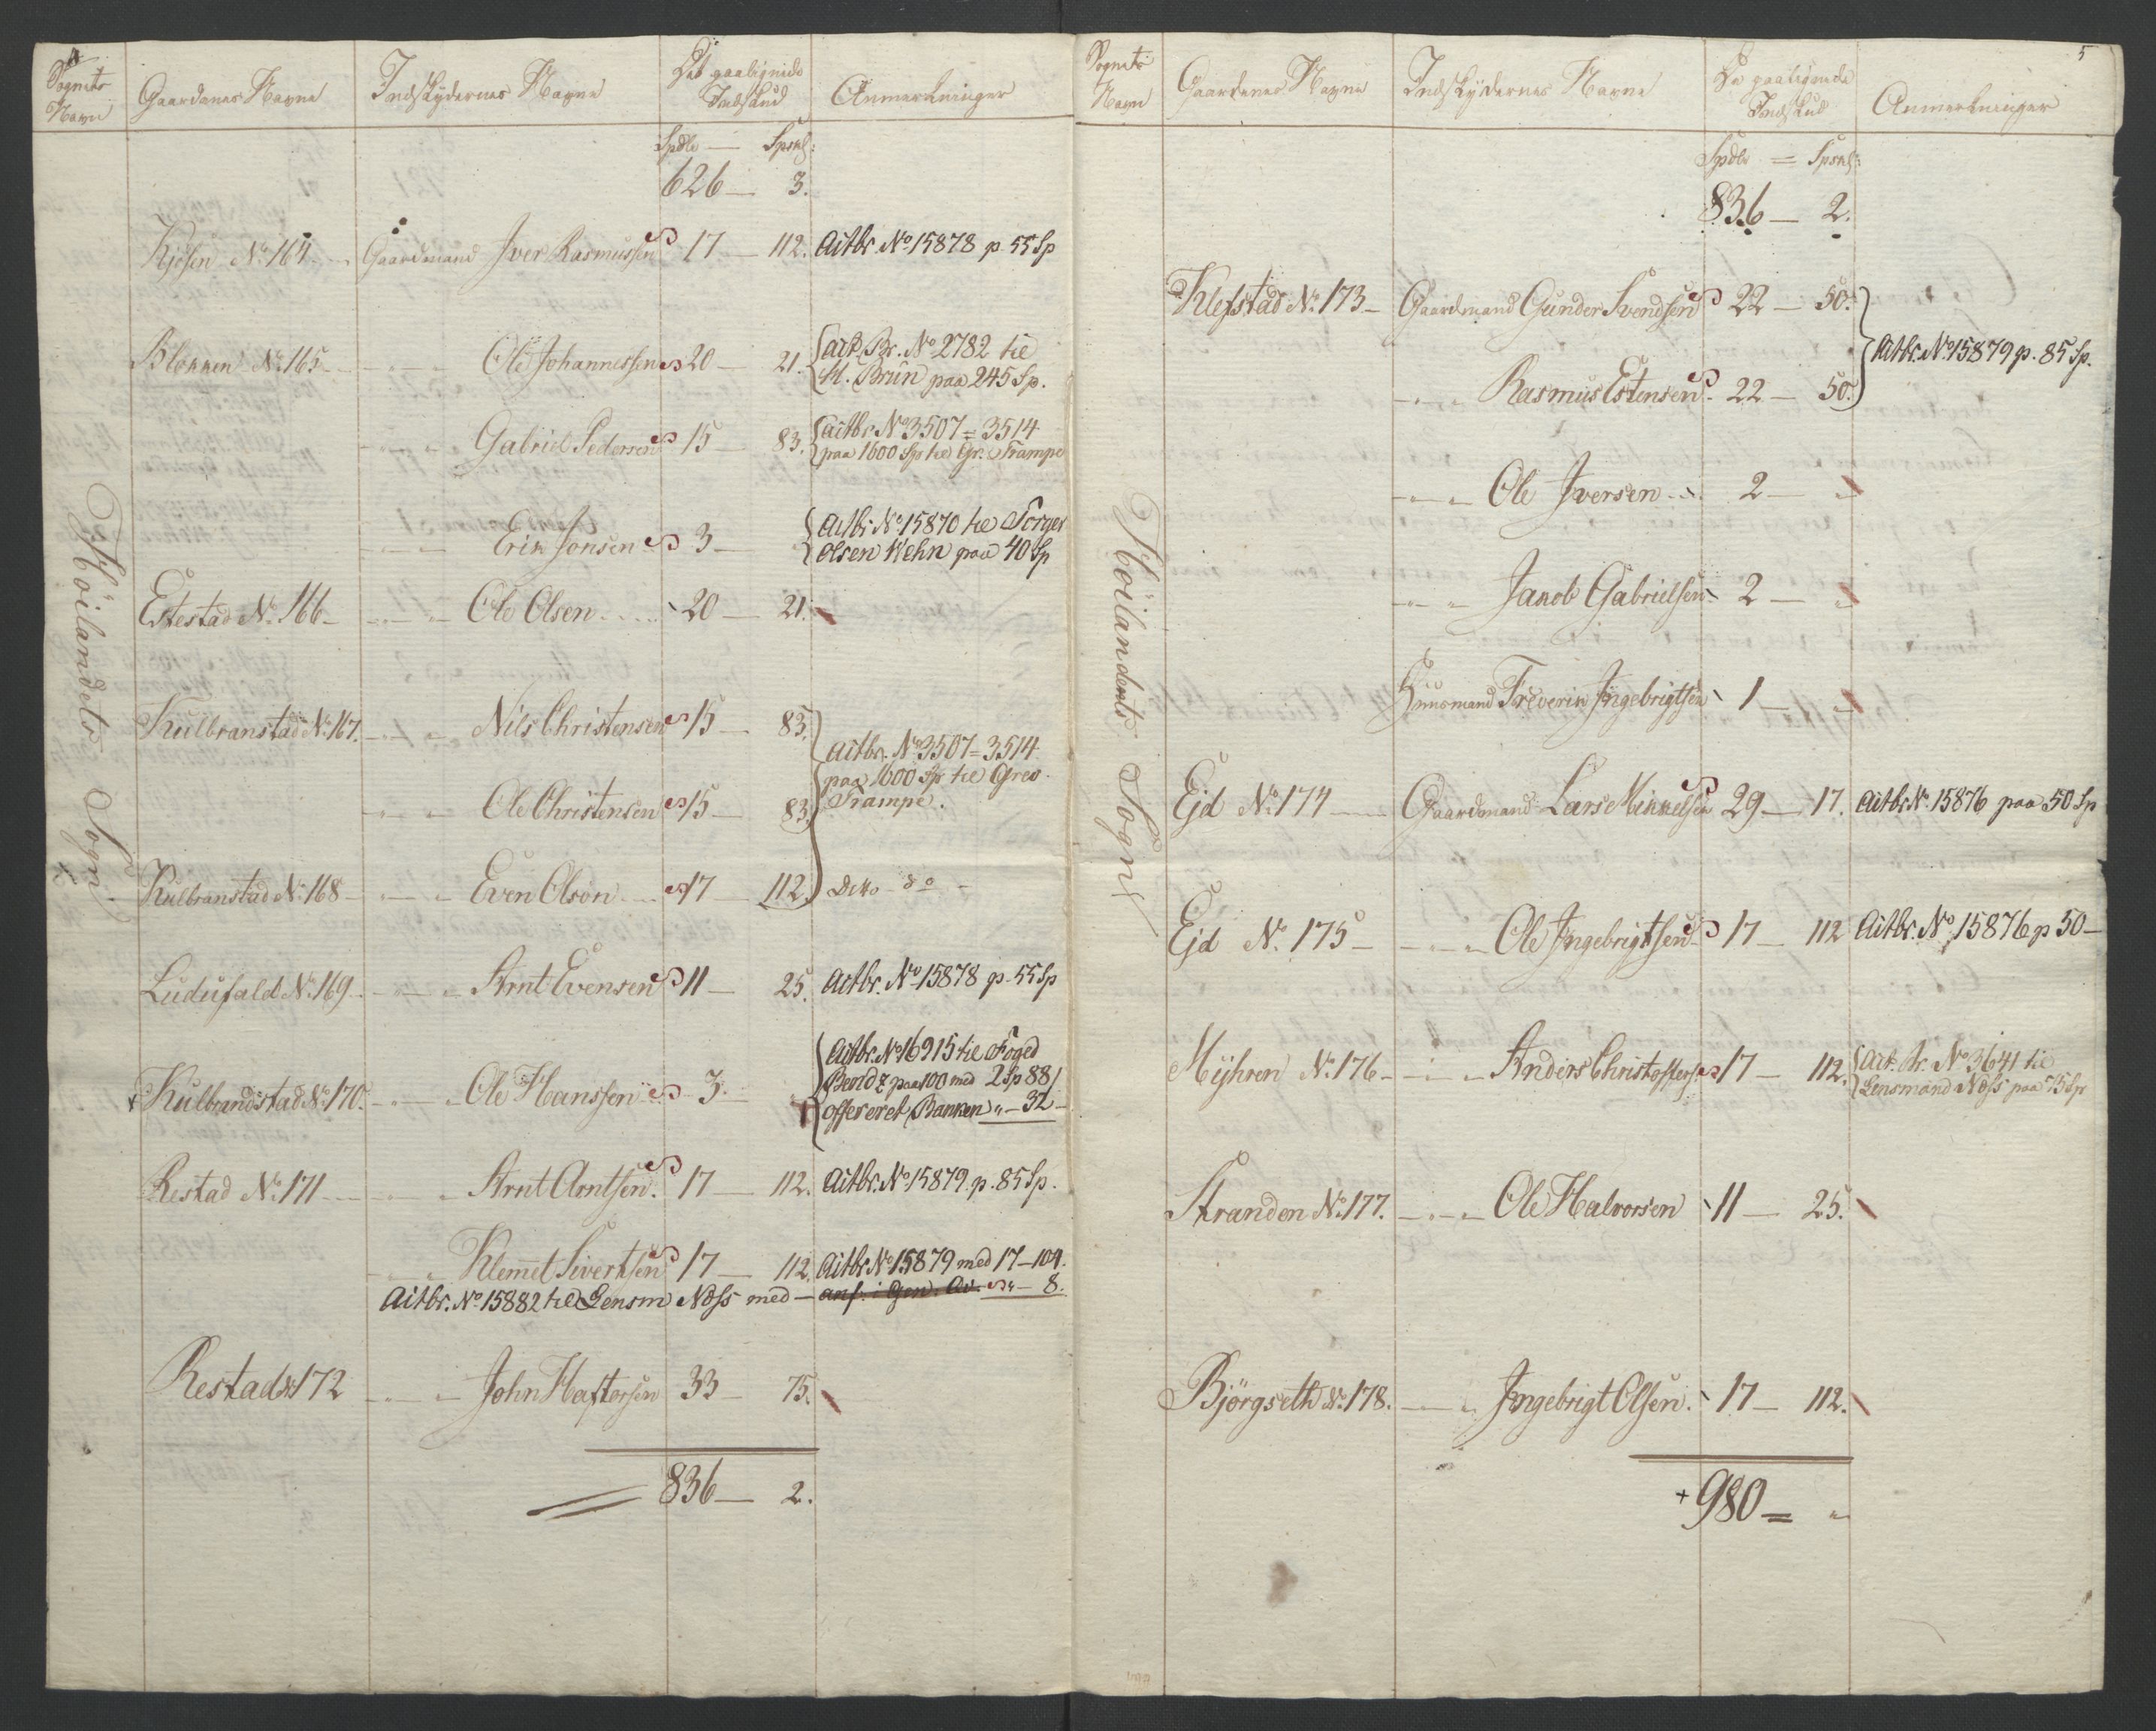 4
Sognets Navn Gaardenes Navne Indskydernes Navne Det paalignede Indskud Anmerkninger
Spdlr — Spskl:
626 — 3.
Høilandets Sogn
Kjøsen No 164 Gaardmand Iver Rasmussen 17 — 112. Actbr No 15878 p 55 Sp
Blokken No 165 — " — Ole Johannessen 20 — 21. Act Br. No 2782 til
H. Brün paa 245 Sp.
— " — Gabriel Pedersen 15 — 83. Actbr No 3507 = 3514
paa 1600 Sp til Gr. Trampe
— " — Erik Jonsen 3 — Actbr No 15870 til Torger
Olsen Wehn paa 40 Sp
Estestad No 166 — " — Ole Olsen 20 — 21.
Kulbranstad No 167. — " — Nils Christensen 15 — 83.
Actbr. No 3507 = 3514
paa 1600 Sp til Grev
Trampe.
— " — Ole Christensen 15 — 83.
Kulbranstad No 168 — " — Even Olsen 17 — 112. Ditto do —
Ludufald No 169. — " — Arnt Evensen 11 — 25. Actbr. No 15878 p. 55 Sp
Kulbrandstad No 170. — " — Ole Hanssen 3 — Actbr. No 16915 til Foged
Bendz paa 100 med 2 Sp 88/
offereret Banken " — 32 —
Restad No 171 — " — Arnt Arntsen. 17 — 112. Actbr. No 15879 p. 85 Sp.
— " — Klemet Sivertsen 17 — 112. Actbr No 15879 med 17 — 104.
Actbr. No 15882 til Lensm Næss med — anf. i Gen. " — 8.
Restad No 172 — " — John Haftorsen 33 — 75.
836 — 2.
5
Sognets Navn Gaardenes Navne Indskydernes Navne De paalignede Indskud Anmerkninger
Spdlr = Spskl:
836 — 2.
Høilandets Sogn
Klefstad No 173 — Gaardmand Gunder Svendsen 22 — 50.
Actbr. No 15879 p. 85 Sp.
— " — Rasmus Estensen 22 — 50.
— " — Ole Iversen 2 — "
— " — Jakob Gabrielsen 2 — "
Huusmand Ingebrigtsen 1 — "
Ejd No 174 — Gaardmand Lars Mikkelsen 29 — 17. Actbr No 15876 paa 50 Sp
Ejd No 175 — " — Ole Ingebrigtsen 17 — 112 Actbr. No 15876 p 50 —
Myhren No 176 — " — Anders Christophers. 17 — 112. Act. Br. No 3641 til
Lensmand Næss paa 75 Sp
Stranden No 177. — " — Ole Halvorsen 11 — 25.
Björgseth No 178. — " — Ingebrigt Olsen. 17 — 112.
+ 980 = "